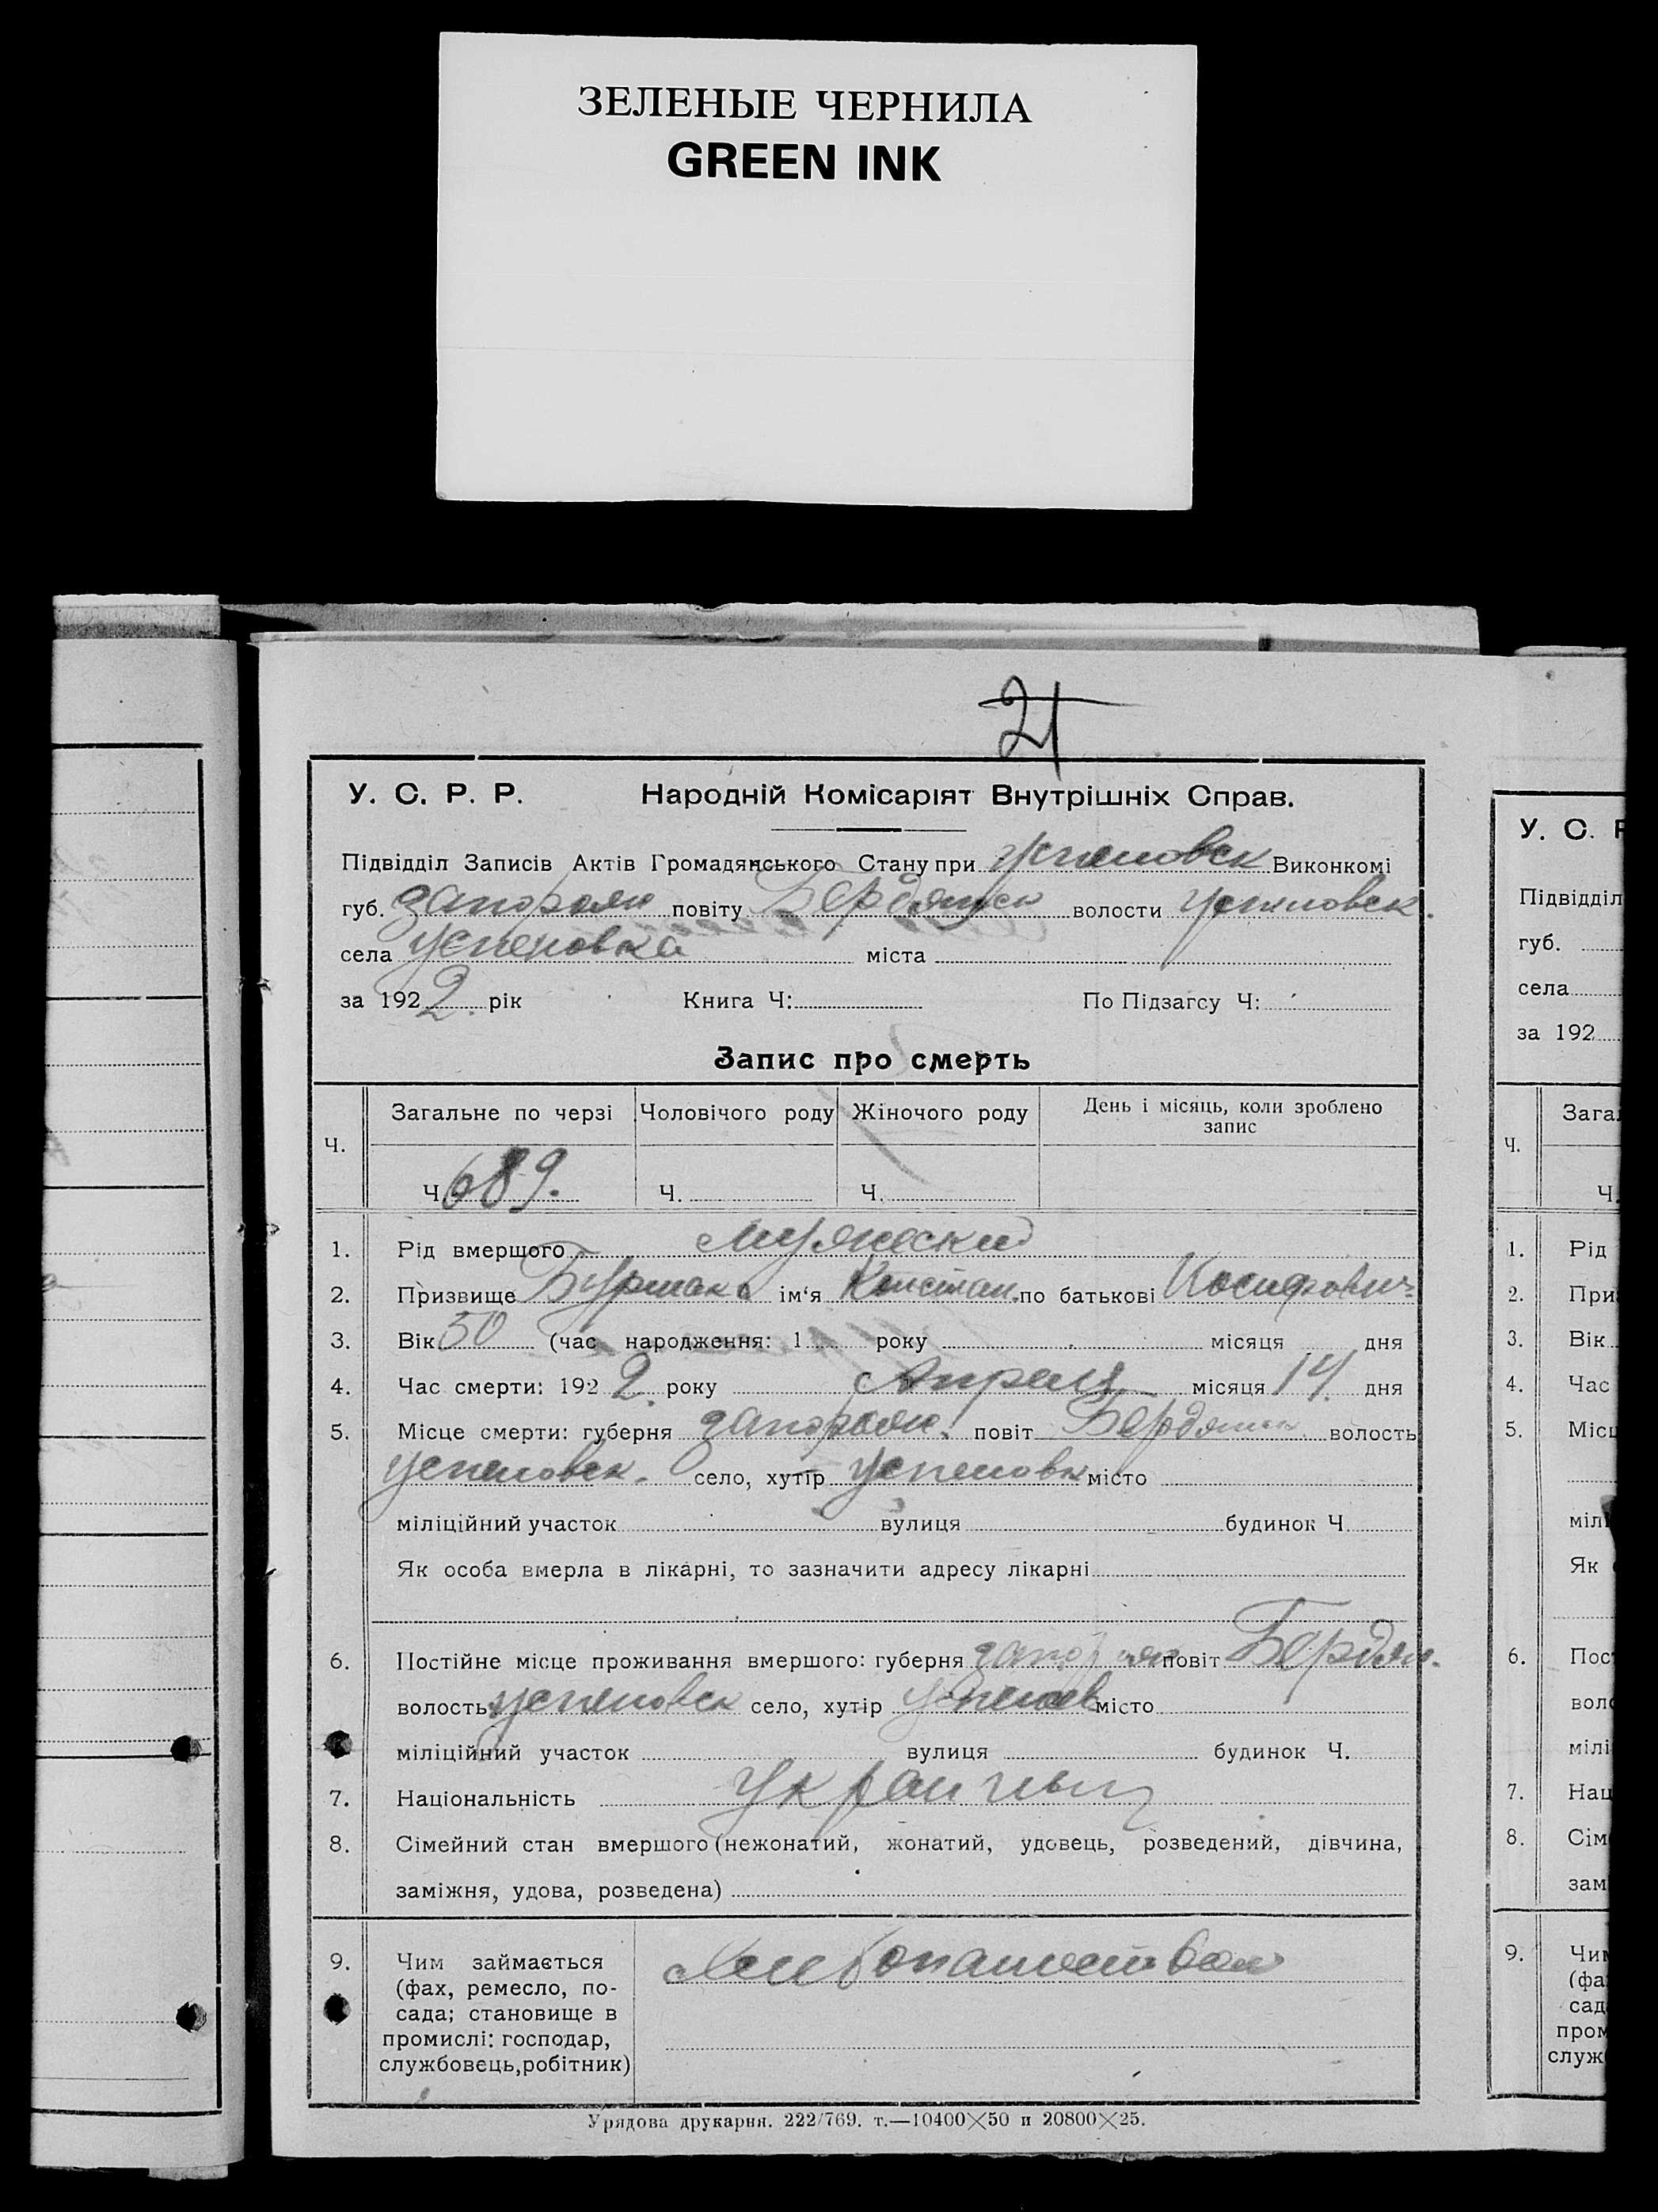 ЗЕЛЕНЫЕ ЧЕРНИЛА
GREEN INK
21
У. С. Р. Р. Народній Комісаріят Внутрішніх Справ.
Підвідділ Записів Актів Громадянського Стану при Успеновск Виконкомі
губ. Запорож повіту Бердянск волости Успеновск.
села Успеновка міста
за 1922 рік Книга Ч: По Підзагсу Ч:
Запис про смерть
Ч. Загальне по черзі Чоловічого роду Жіночого роду День і місяць, коли зроблено запис
Ч. 689. Ч. Ч.
1. Рід вмершого Мужеский
2. Призвище ім‘я Констан. по батькові Иосифович
3. Вік 50 (час народження: 1 року місяця дня
4. Час смерти: 1922 року Апреля місяця 14 дня
5. Місце смерти: губерня Запорож. повіт Бердянск волость
Успеновск. село, хутір Успеновк місто
міліційний участок вулиця будинок Ч
Як особа вмерла в лікарні, то зазначити адресу лікарні
6. Постійне місце проживання вмершого: губерня повіт Бердян.
волость Успеновск село, хутір Успенов місто
міліційний участок вулиця будинок Ч.
7. Національність
8. Сімейний стан вмершого (нежонатий, жонатий, удовець, розведений, дівчина,
заміжня, удова, розведена)
9. Чим займається Хлебопашеством
(фах, ремесло, по-
сада; становище в
промислі: господар,
службовець, робітник)
Урядова друкарня. 222/769. т.—10400×50 и 20800×25.
У. С. Р
Підвідділ
губ.
села
за 192
Ч.
Ч.
1. Рід
2. При
3. Вік
4. Час
5. Місц
міл
Як
6. Пос
вол
мілі
7. Нац
8. Сім
зам
9. Чим
(фа
сад
пром
служ